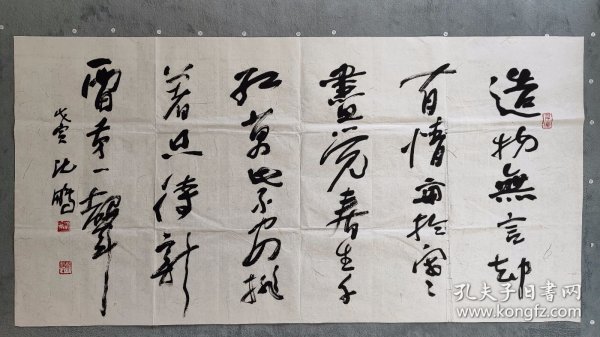 造物無言却
有情每於寒
盡覺春生千
紅萬紫安排
著只待新
雷第一聲
戊寅沈鹏
孔夫子旧书网
www.kongfz.com